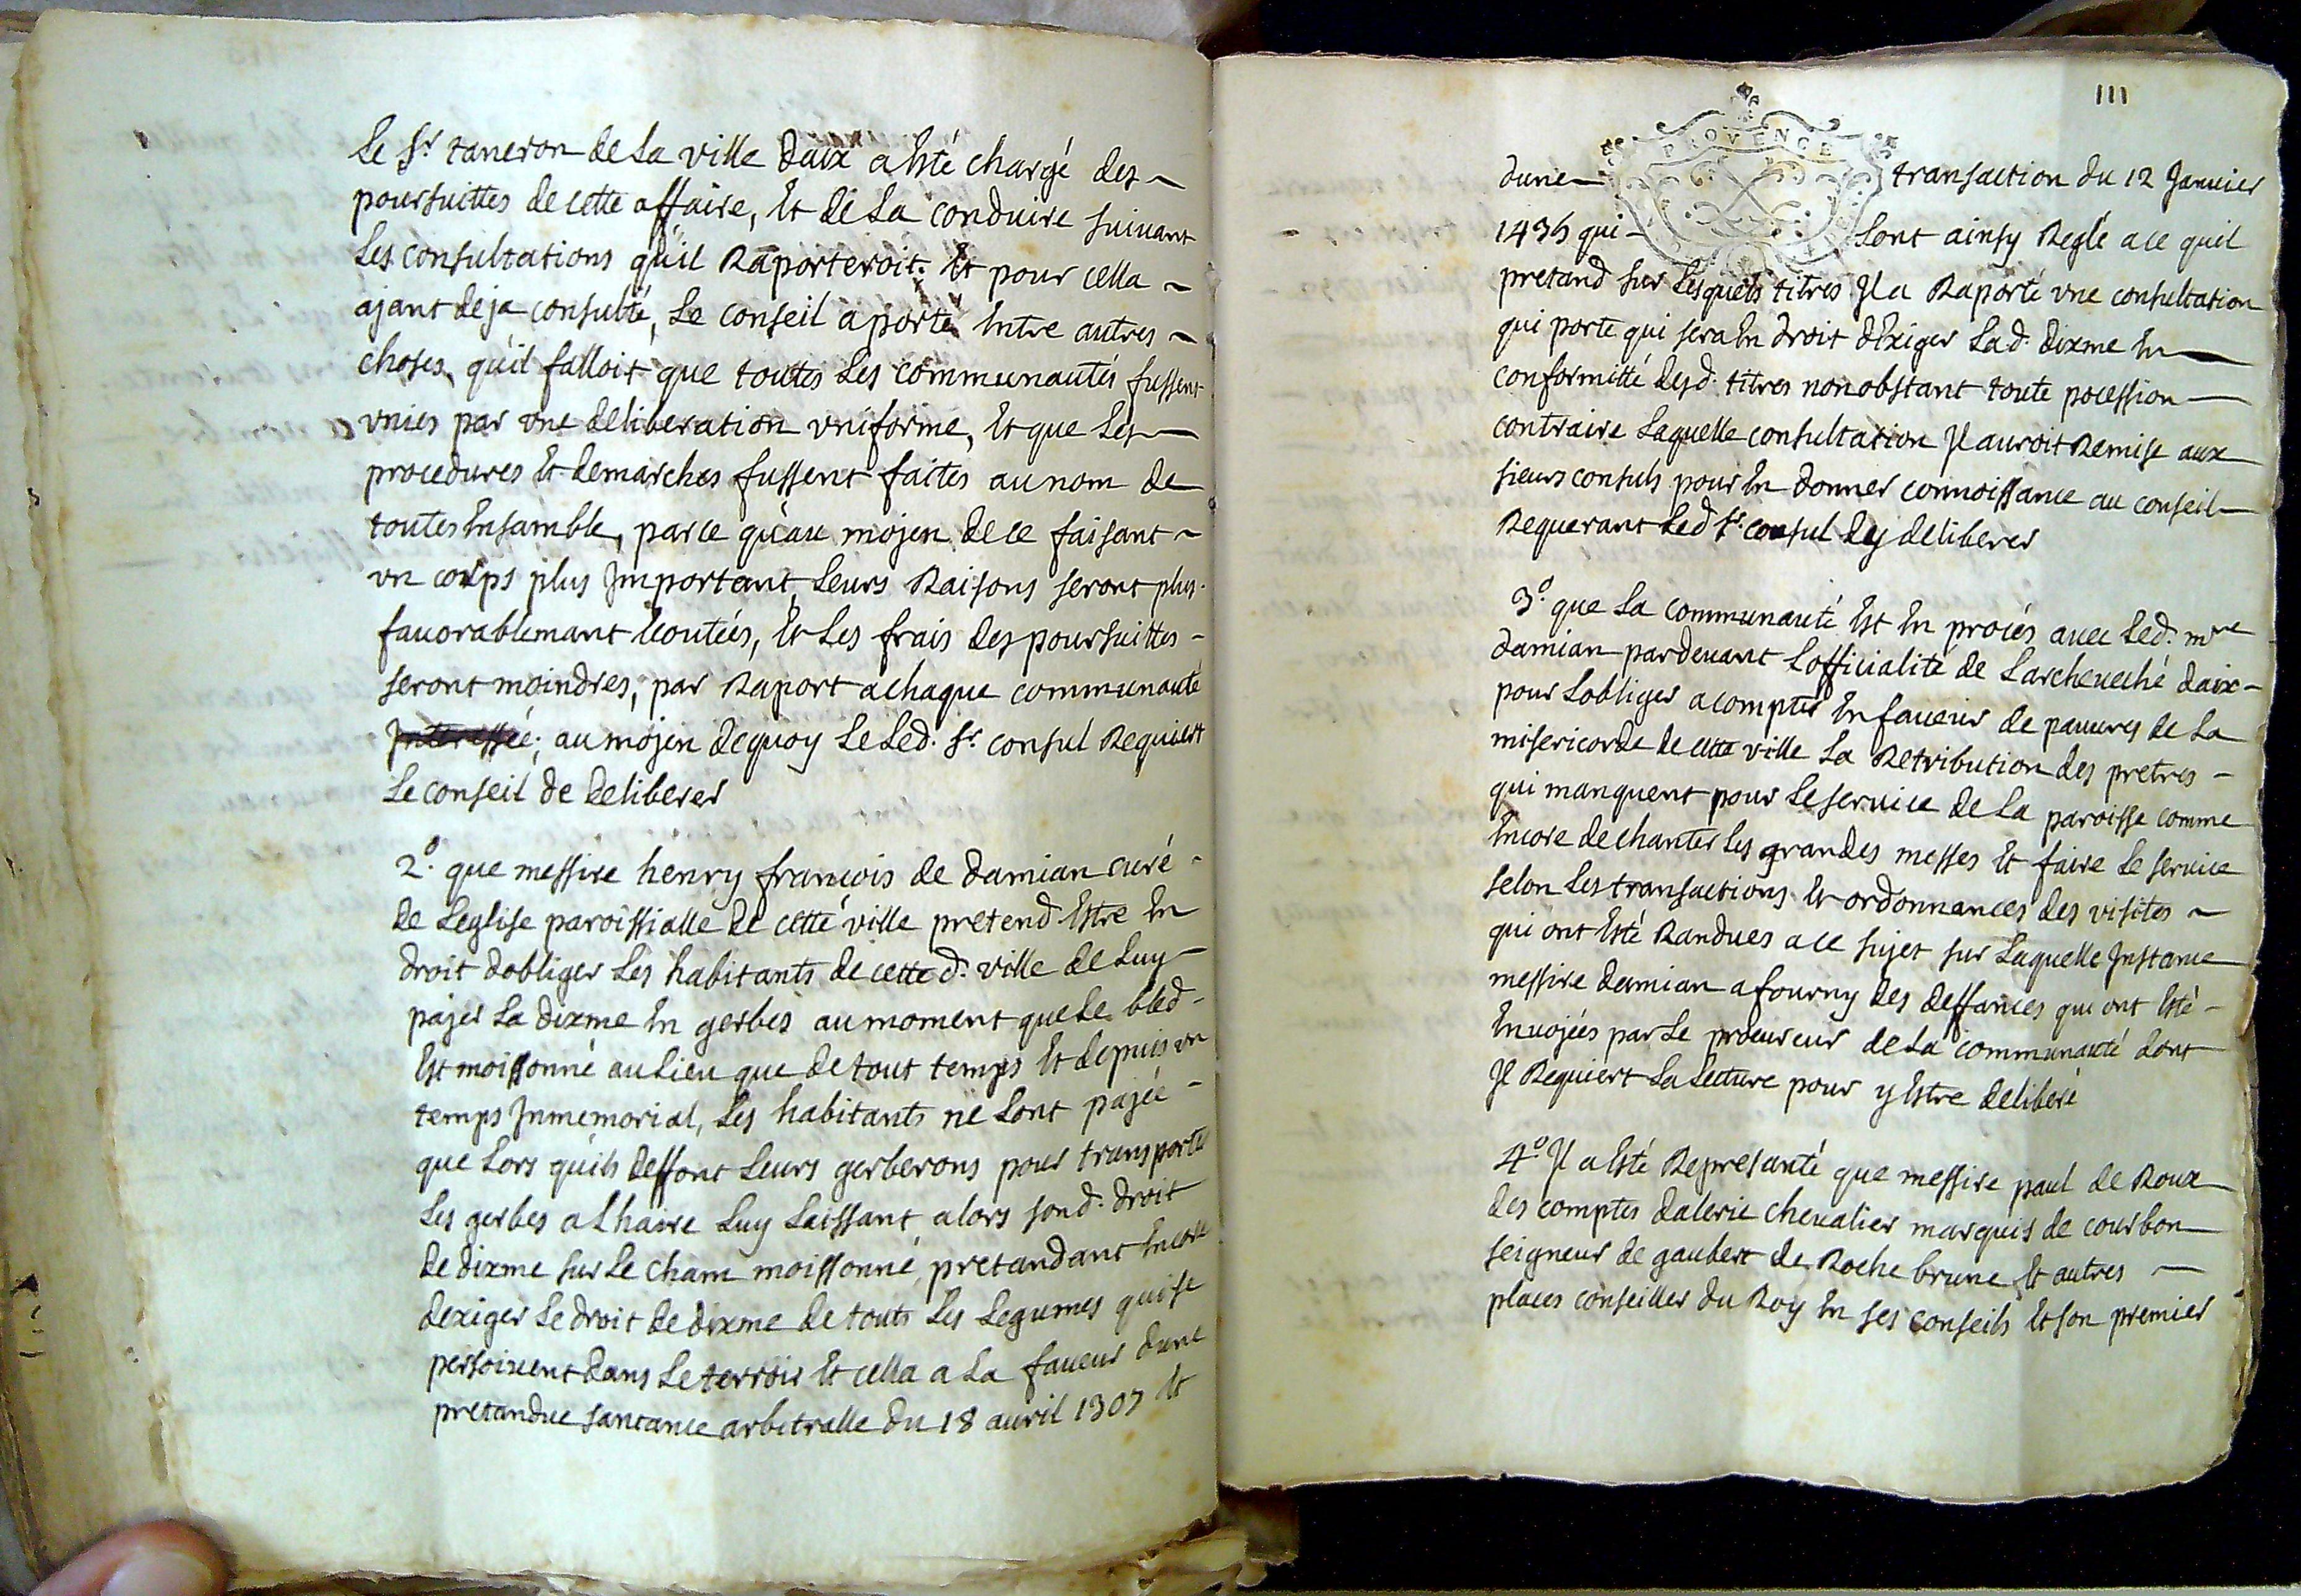 Le Sr taneron de La ville daix a Esté chargé des
poursuittes de cette affaire, Et de La conduire suivant
Les consultations qu'il Raporteroit. Et pour cella
ajant deja consulté, Le conseil a porté Entre autres
choses qu'il falloit que toutes Les communautés fussent
vnies par vne deliberation vniforme, Et que Les
procedures Et demarches fussent faites au nom de
toutes Ensamble, parce qu'au mojen de ce faisant
vn corps plus Important, Leurs Raisons seront plus
fauorablemant Ecoutées, Et Les frais des poursuittes
seront moindres, par Raport a chaque communauté
Interessée; au mojen dequoy Le Led. Sr. consul Requiert
Le conseil de deliberer
2o. que messire henry francois de damian curé
de Leglise paroissialle de cette ville pretend Estre En
droit dobliger Les habitants de cette d. ville de Luy
pajer La dixme En gerbes au moment que Le bled
Est moissonné au Lieu que de tout temps Et depuis vn
temps Inmemorial, Les habitants ne Lont pajée
que Lors quils deffont Leurs gerberons pour transporter
Les gerbes a Lhaire Luy Laissant alors sond. droit
de dixme sur Le cham moissonné, pretandant Encore
dexiger Le droit de dixme de touts Les Legumes qui se
persoivent dans Le terroir Et cella a La faveur dune
pretandue santance arbitralle du 18 auril 1307 Et
III
PROVENCE
dune transaction du 12 Januier
1436 qui Lont ainsy Reglé a ce quil
pretand sur Lesquels titres Il a Raporté vne consultation
qui porte qui sera En droit dExiger Lad. dixme En
conformitté desd. titres non obstant toute pocession
contraire Laquelle consultation Il auroit Remise aux
sieurs consuls pour En donner connoissance au conseil
Requerant Led Sr. consul dey deliberer
3o. que La communauté Est En procés auec Led. mre
damian pardeuant Lofficialité de Larcheueché daix
pour Lobliger a compter En faueur de pauures de La
misericorde de cette ville La Retribution des pretres
qui manquent pour Le seruice de La paroisse comme
Encore de chanter Les grandes messes Et faire Le seruice
selon Les transactions Et ordonnances des visites
qui ont Esté Randues a ce sujet sur Laquelle Instance
messire damian a fourny des deffances qui ont Esté
Enuojées par Le procureur de La communauté dont
Il Requiert La Lecture pour y Estre deliberé
4o Il a Esté Represanté que messire paul de Roux
des comptes dalerie cheualier marquis de courbon
seigneur de gaubert de Roche brune Et autres
places conseiller du Roy En ses conseils Et son premier